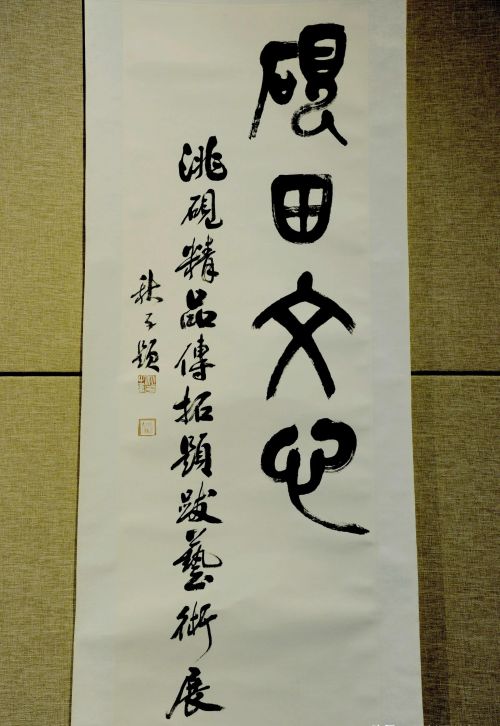 硯田文心
洮硯精品傳拓題跋藝術展
秋子題